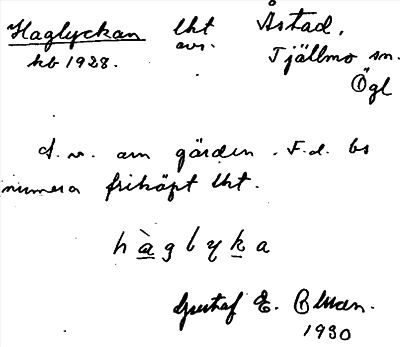 Haglyckan lht Åstad,
kb 1928. avs. Tjällmo sn.
Ögl
S. v. om gården. F.d. bs
numera friköpt lht.
hàglyka
Gustaf E. Olson.
1930